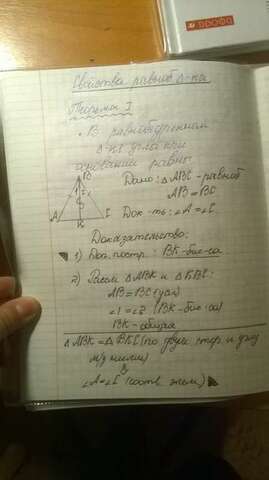 ПРОФИ
Свойства равноб Δ-ка
Теорема 1
• В равнобедренном
Δ-ке углы при
основании равны
B
1 2
A K C
Дано: Δ ABC - равноб
AB = BC
Док-ть: ∠A = ∠C
Доказательство:
1) Доп. постр.: BK - бис-са
2) Рассм. Δ ABK и Δ KBC:
AB = BC (усл)
∠1 = ∠2 (BK - бис-са)
BK - общая
Δ ABK = Δ BKC (по двум стор и углу
м/у ними)
⇓
∠A = ∠C (соотв. элем)